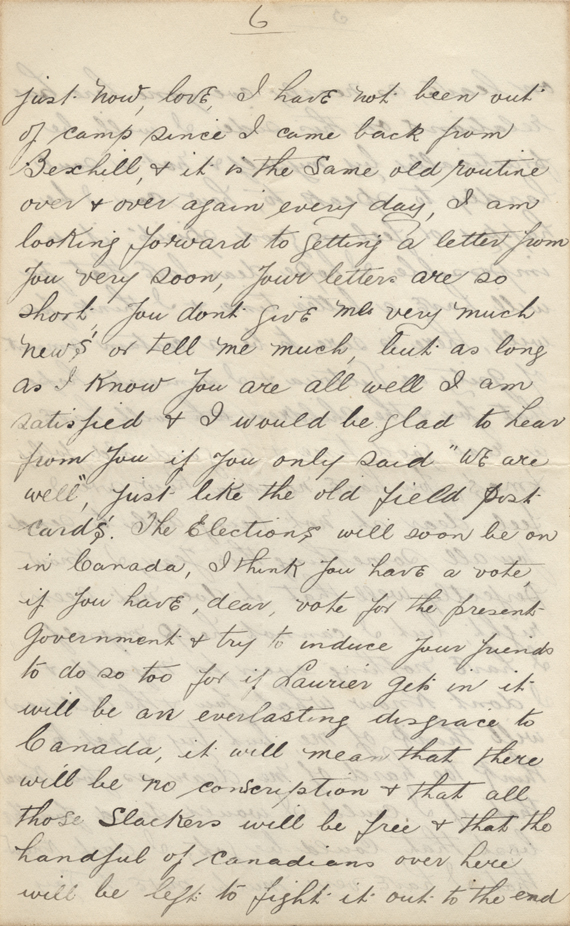 6
just now, love, I have not been out
of camp since I came back from
Bexhill, & it is the same old routine
over & over again every day, I am
looking forward to getting a letter from
you very soon, your letters are so
short, you dont give me very much
news or tell me much, but as long
as I know you are all well I am
satisfied & I would be glad to hear
from you if you only said "we are
well", just like the old field post
cards. The Elections will soon be on
in Canada, I think you have a vote,
if you have, dear, vote for the present
Government & try to induce your friends
to do so too for if Laurier gets in it
will be an everlasting disgrace to
Canada, it will mean that there
will be no conscription & that all
those slackers will be free & that the
handful of Canadians over here
will be left to fight it out to the end